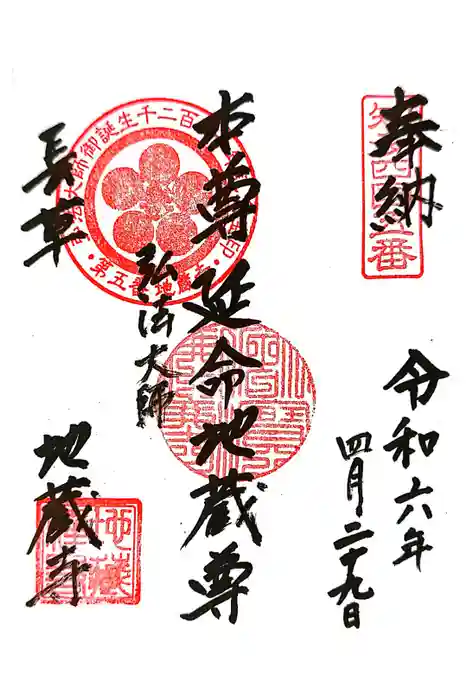 奉納
令和六年
四月二十九日
本尊 延命地蔵尊
弘法大師
長草
地蔵寺
大師御誕生千二百
第五番地蔵寺